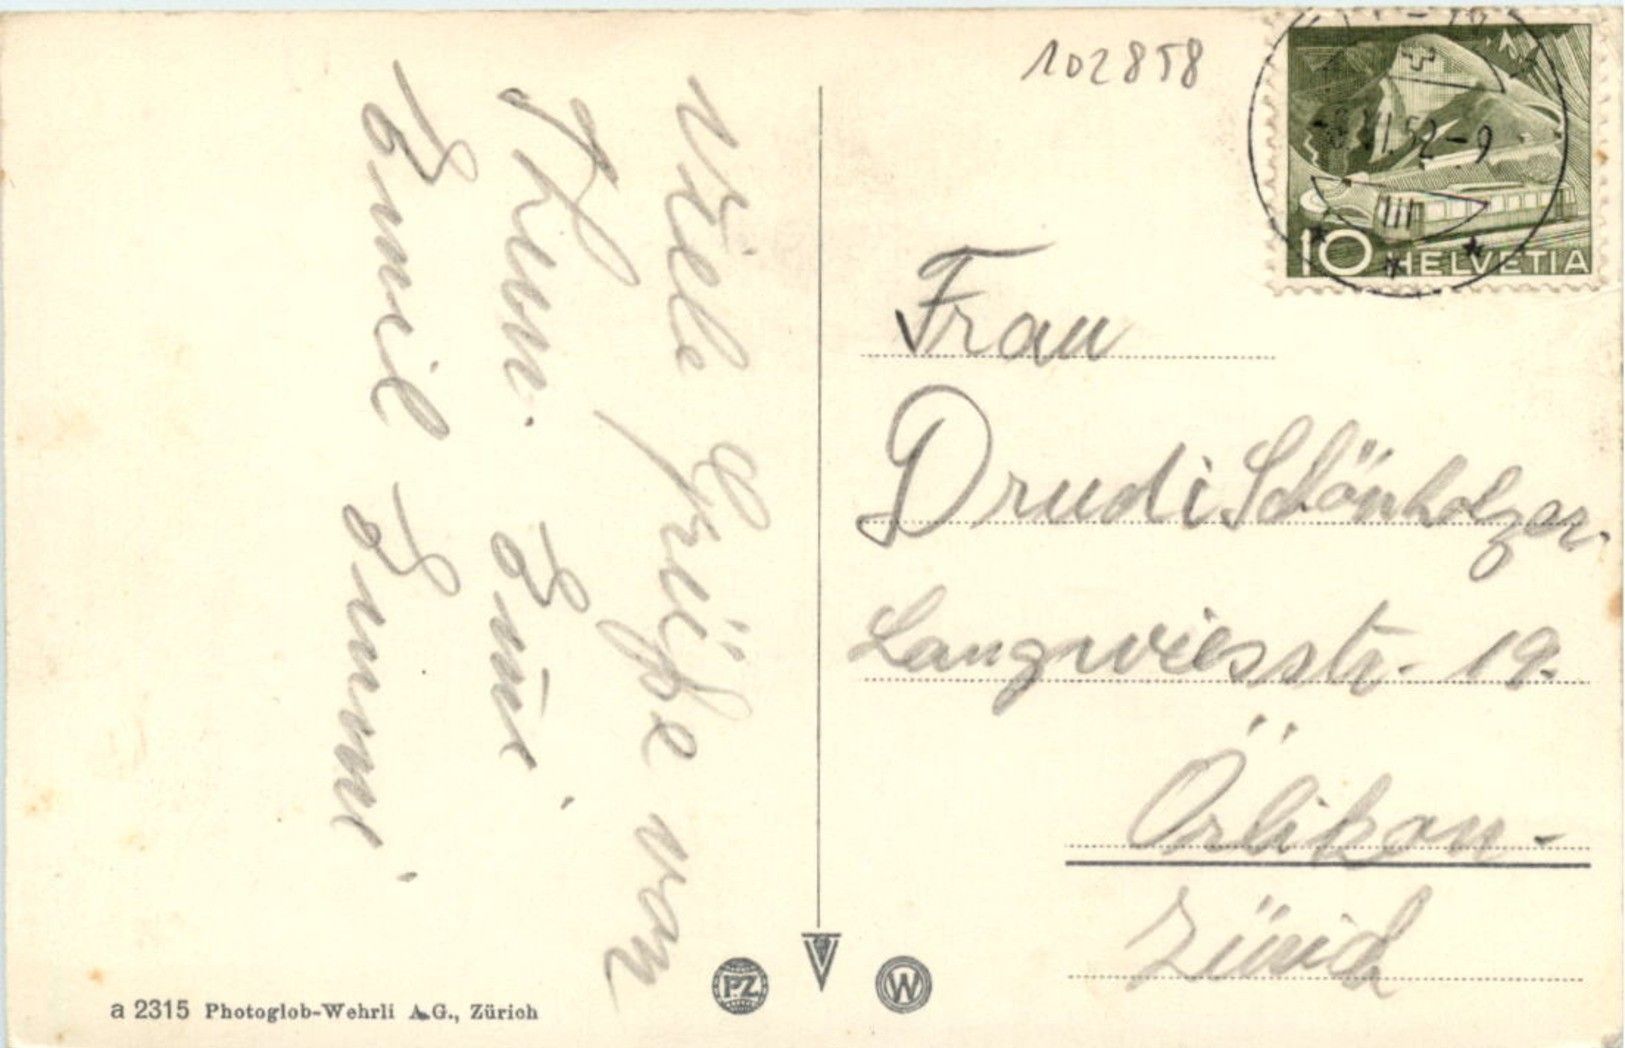 Viele Grüße von
Emil
102858
VI.52-9
10 HELVETIA
Frau
Drudi Schönholzer.
Langwiesstr. 19.
Örlikon-
Zürich
PZ
W
a 2315 Photoglob-Wehrli A.G., Zürich